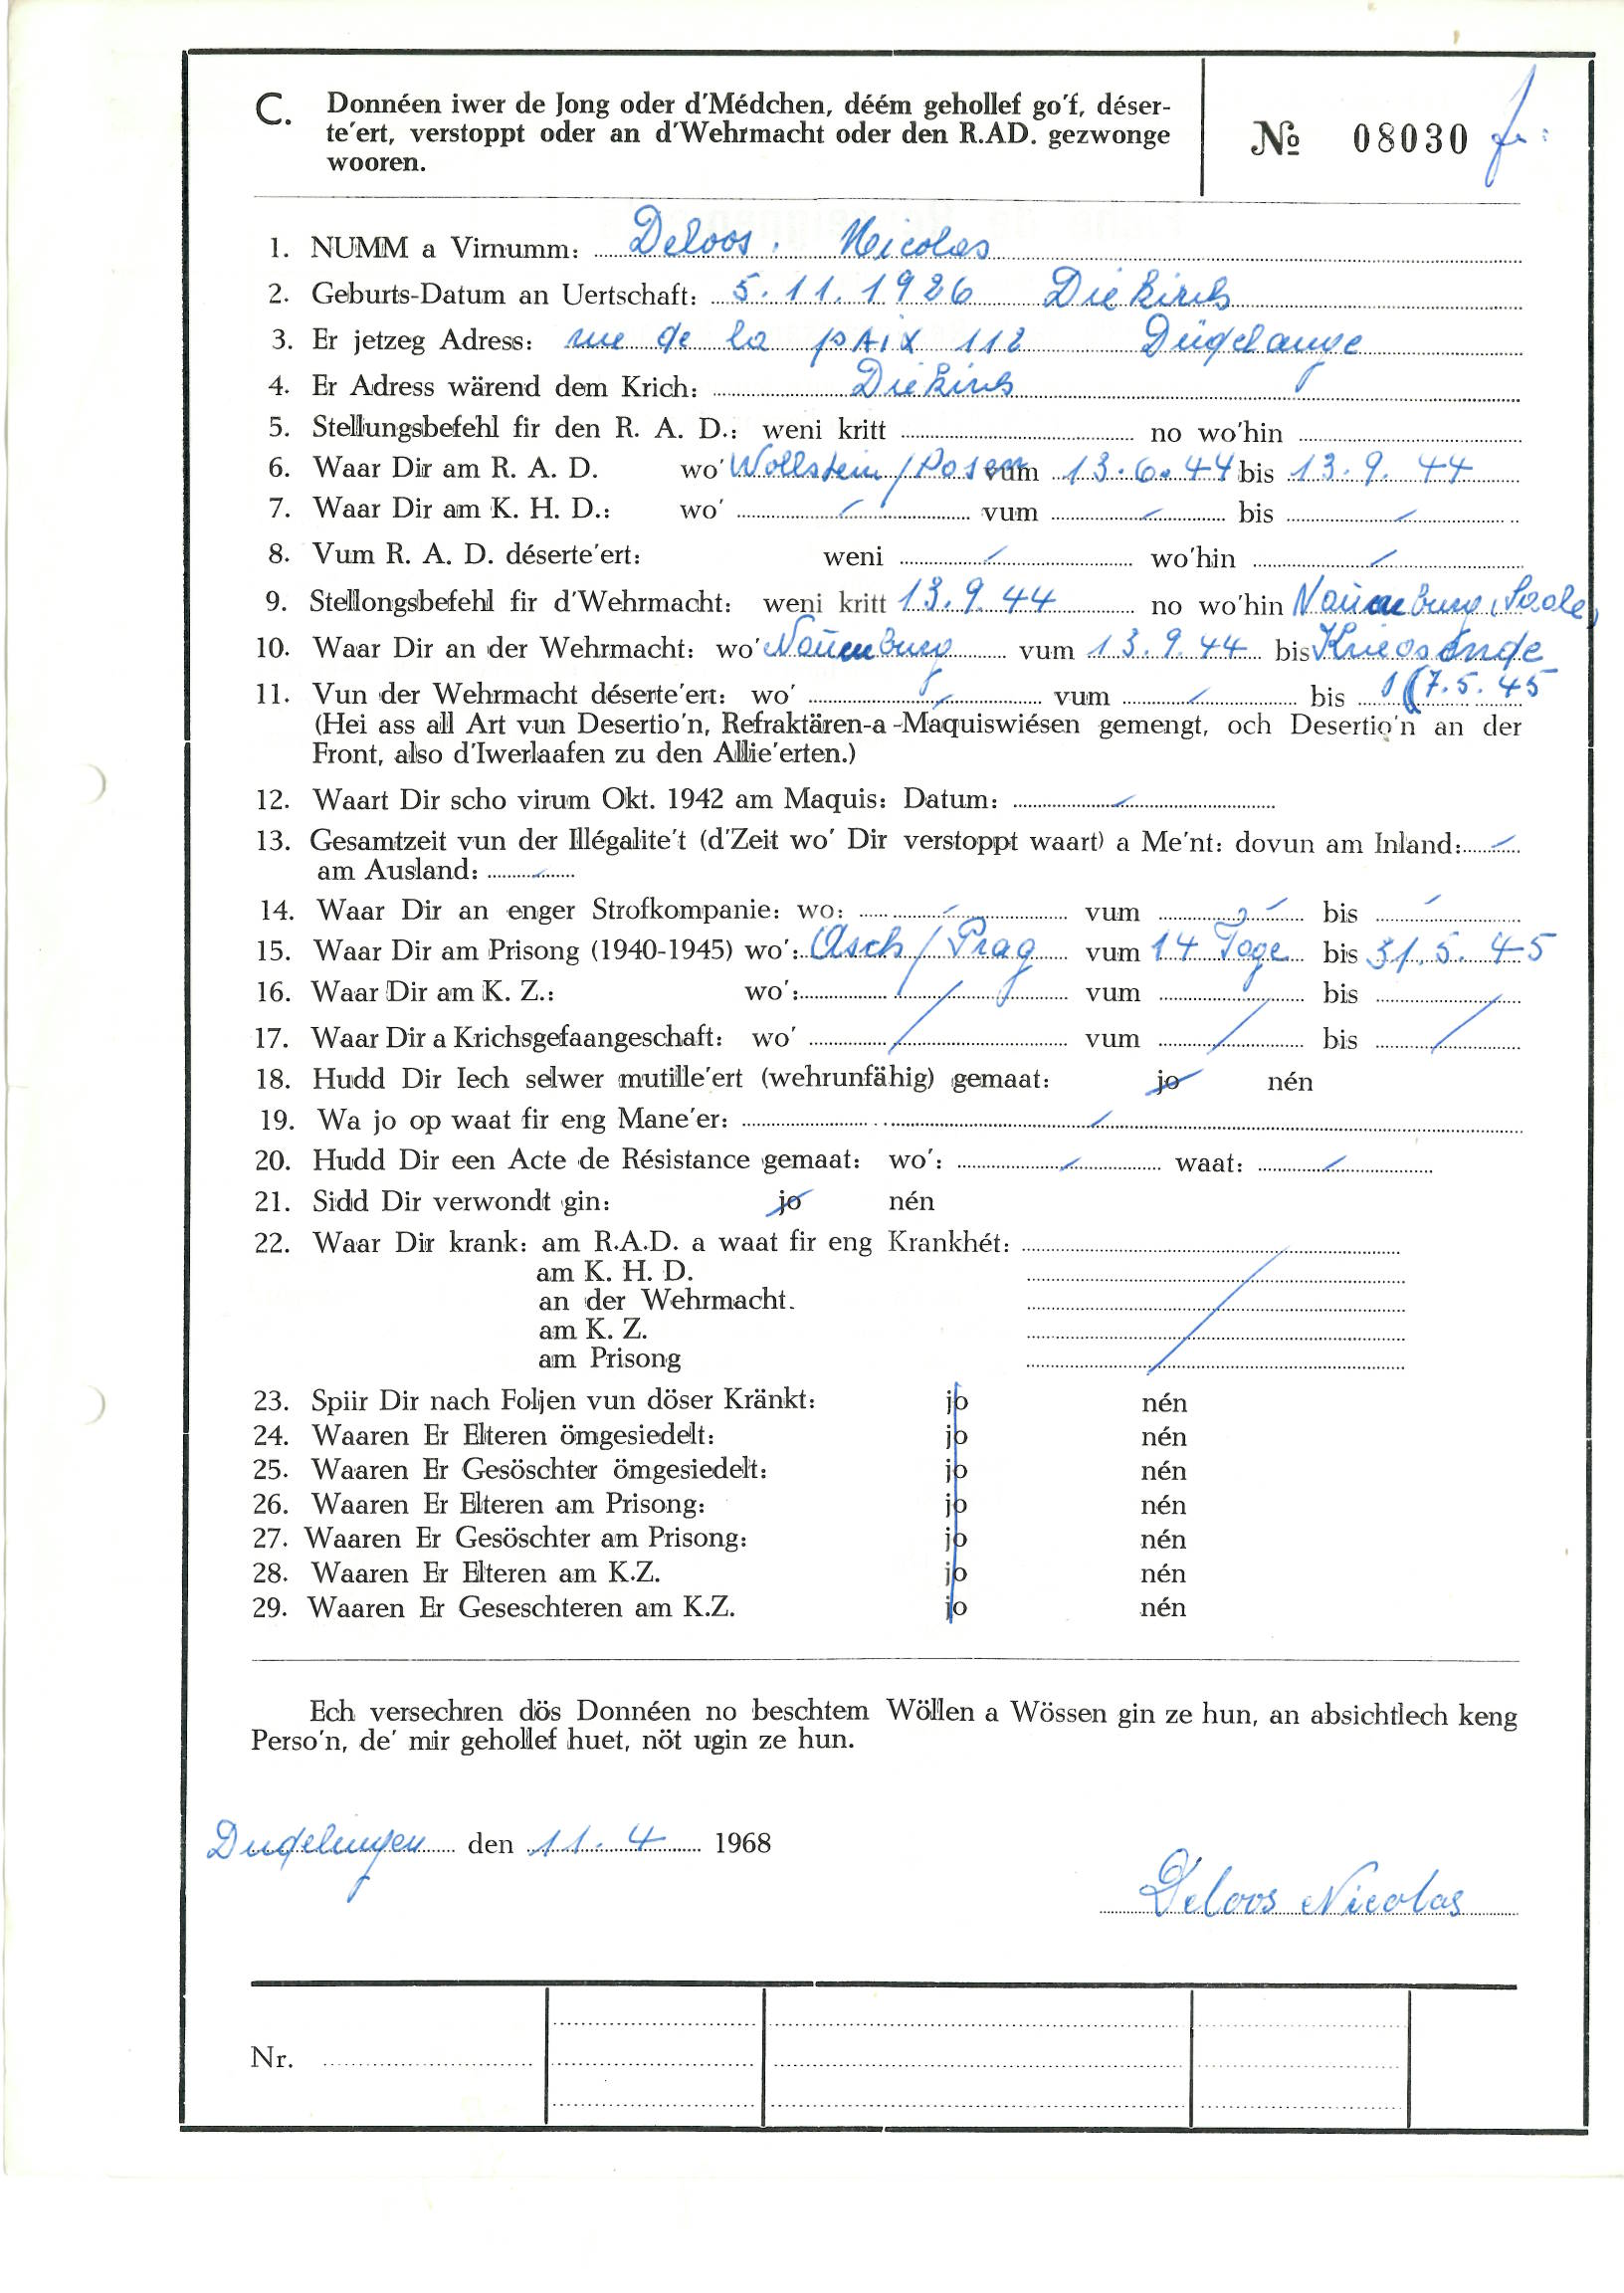 C. Donnéen iwer de Jong oder d'Médchen, déém gehollef go'f, déser-
te'ert, verstoppt oder an d'Wehrmacht oder den R.AD. gezwonge
wooren.
No 08030
1. NUMM a Virnumm: Deloos. Nicolas
2. Geburts-Datum an Uertschaft: 5.11.1926 Diekirch
3. Er jetzeg Adress: rue de la pAix 112 Düdelange
4. Er Adress wärend dem Krich: Diekirch
5. Stellungsbefehl fir den R. A. D.: weni kritt no wo'hin
6. Waar Dir am R. A. D. wo' Wollstein/Posen vum 13.6.44 bis 13.9.44
7. Waar Dir am K. H. D.: wo' / vum / bis /
8. Vum R. A. D. déserte'ert: weni / wo'hin /
9. Stellongsbefehl fir d'Wehrmacht: weni kritt 13.9.44 no wo'hin Naumburg (Saale)
10. Waar Dir an der Wehrmacht: wo' Naumburg vum 13.9.44 bis Kriegsende
11. Vun der Wehrmacht déserte'ert: wo' / vum / bis (7.5.45
(Hei ass all Art vun Desertio'n, Refraktären-a -Maquiswiésen gemengt, och Desertio'n an der
Front, also d'Iwerlaafen zu den Allie'erten.)
12. Waart Dir scho virum Okt. 1942 am Maquis: Datum: /
13. Gesamtzeit vun der Illégalite't (d'Zeit wo' Dir verstoppt waart) a Me'nt: dovun am Inland: /
am Ausland: /
14. Waar Dir an enger Strofkompanie: wo: / vum / bis /
15. Waar Dir am Prisong (1940-1945) wo': Asch/Prag vum 14 Tage bis 31.5.45
16. Waar Dir am K. Z.: wo': / vum / bis /
17. Waar Dir a Krichsgefaangeschaft: wo' / vum / bis /
18. Hudd Dir Iech selwer mutille'ert (wehrunfähig) gemaat: jo nén
19. Wa jo op waat fir eng Mane'er: /
20. Hudd Dir een Acte de Résistance gemaat: wo': / waat: /
21. Sidd Dir verwondt gin: jo nén
22. Waar Dir krank: am R.A.D. a waat fir eng Krankhét:
am K. H. D.
an der Wehrmacht.
am K. Z.
am Prisong
23. Spiir Dir nach Foljen vun döser Kränkt: jo nén
24. Waaren Er Elteren ömgesiedelt: jo nén
25. Waaren Er Gesöschter ömgesiedelt: jo nén
26. Waaren Er Elteren am Prisong: jo nén
27. Waaren Er Gesöschter am Prisong: jo nén
28. Waaren Er Elteren am K.Z. jo nén
29. Waaren Er Geseschteren am K.Z. jo nén
Ech versechren dös Donnéen no beschtem Wöllen a Wössen gin ze hun, an absichtlech keng
Perso'n, de' mir gehollef huet, nöt ugin ze hun.
Dudelingen den 11.4 1968
Deloos Nicolas
Nr.